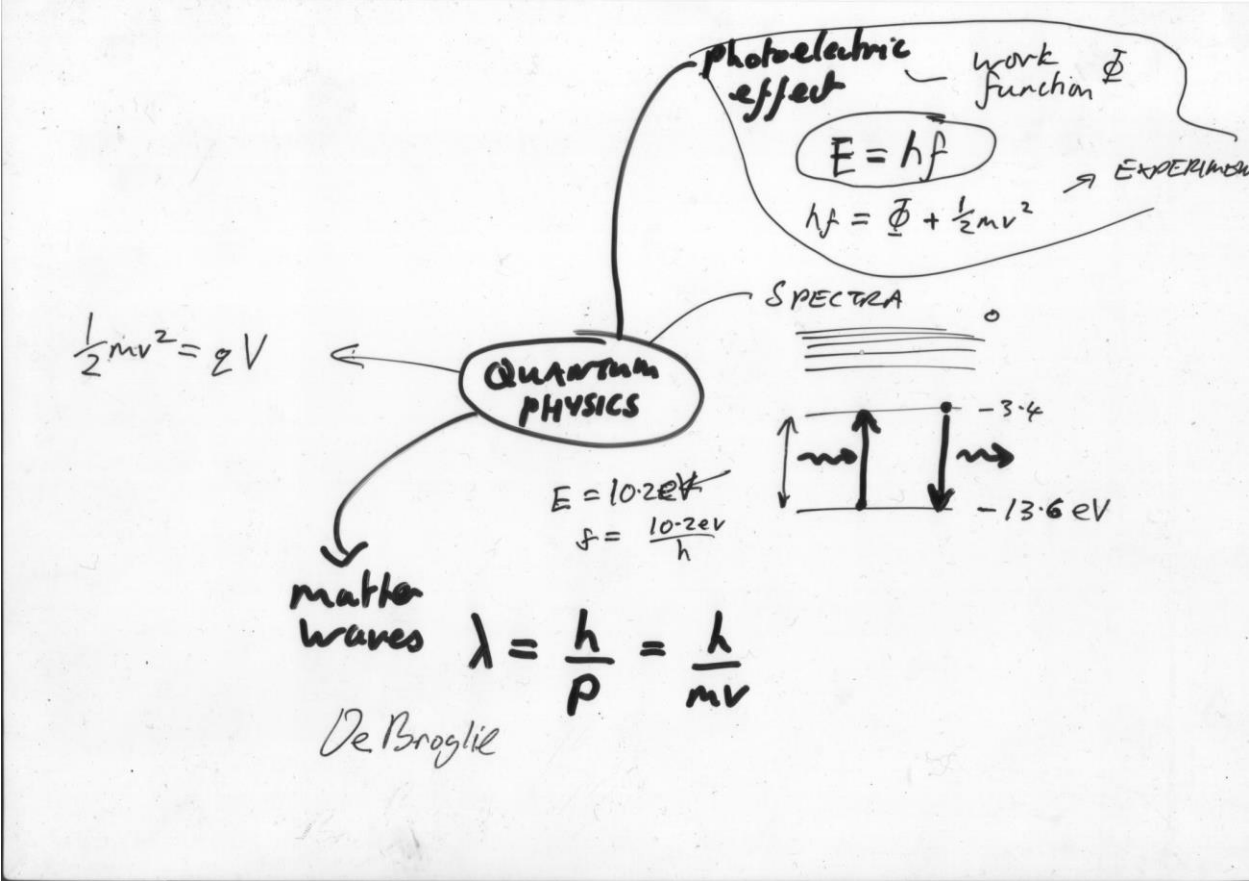 photoelectric
effect
work
function Φ
E = hf
hf = Φ + ½mv²
EXPERIMEN
SPECTRA
0
½mv² = qV
QUANTUM
PHYSICS
-3.4
-13.6 eV
E = 10.2eV
f = 10.2ev/h
matter
waves
λ = h/p = h/mv
De Broglie